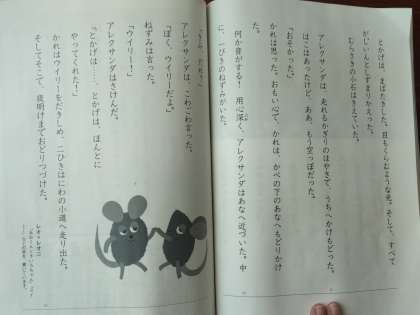 とかげは、まばたきした。目もくらむような光。そして、すべて
がしいんとしずまりかえった。
むらさきの小石はきえていた。
アレクサンダは、走れるかぎりのはやさで、うちへかけもどった。
はこはあったけど、ああ、もう空っぽだった。
「おそかった。」
かれは思った。おもい心で、かれは かべの下のあなへもどりかけ
た。
何か音がする！ 用心深く、アレクサンダはあなへ近づいた。中
に、一ぴきのねずみがいた。
「きみ、だれ？」
アレクサンダは、こわごわ言った。
「ぼく、ウイリーだよ。」
ねずみは言った。
「ウイリー！」
アレクサンダはさけんだ。
「とかげは……、とかげは ほんとに
やってくれた！」
かれはウイリーをだきしめ、二ひきはにわの小道へ走り出た。
そしてそこで、夜明けまでおどりつづけた。
レオ=レオニ